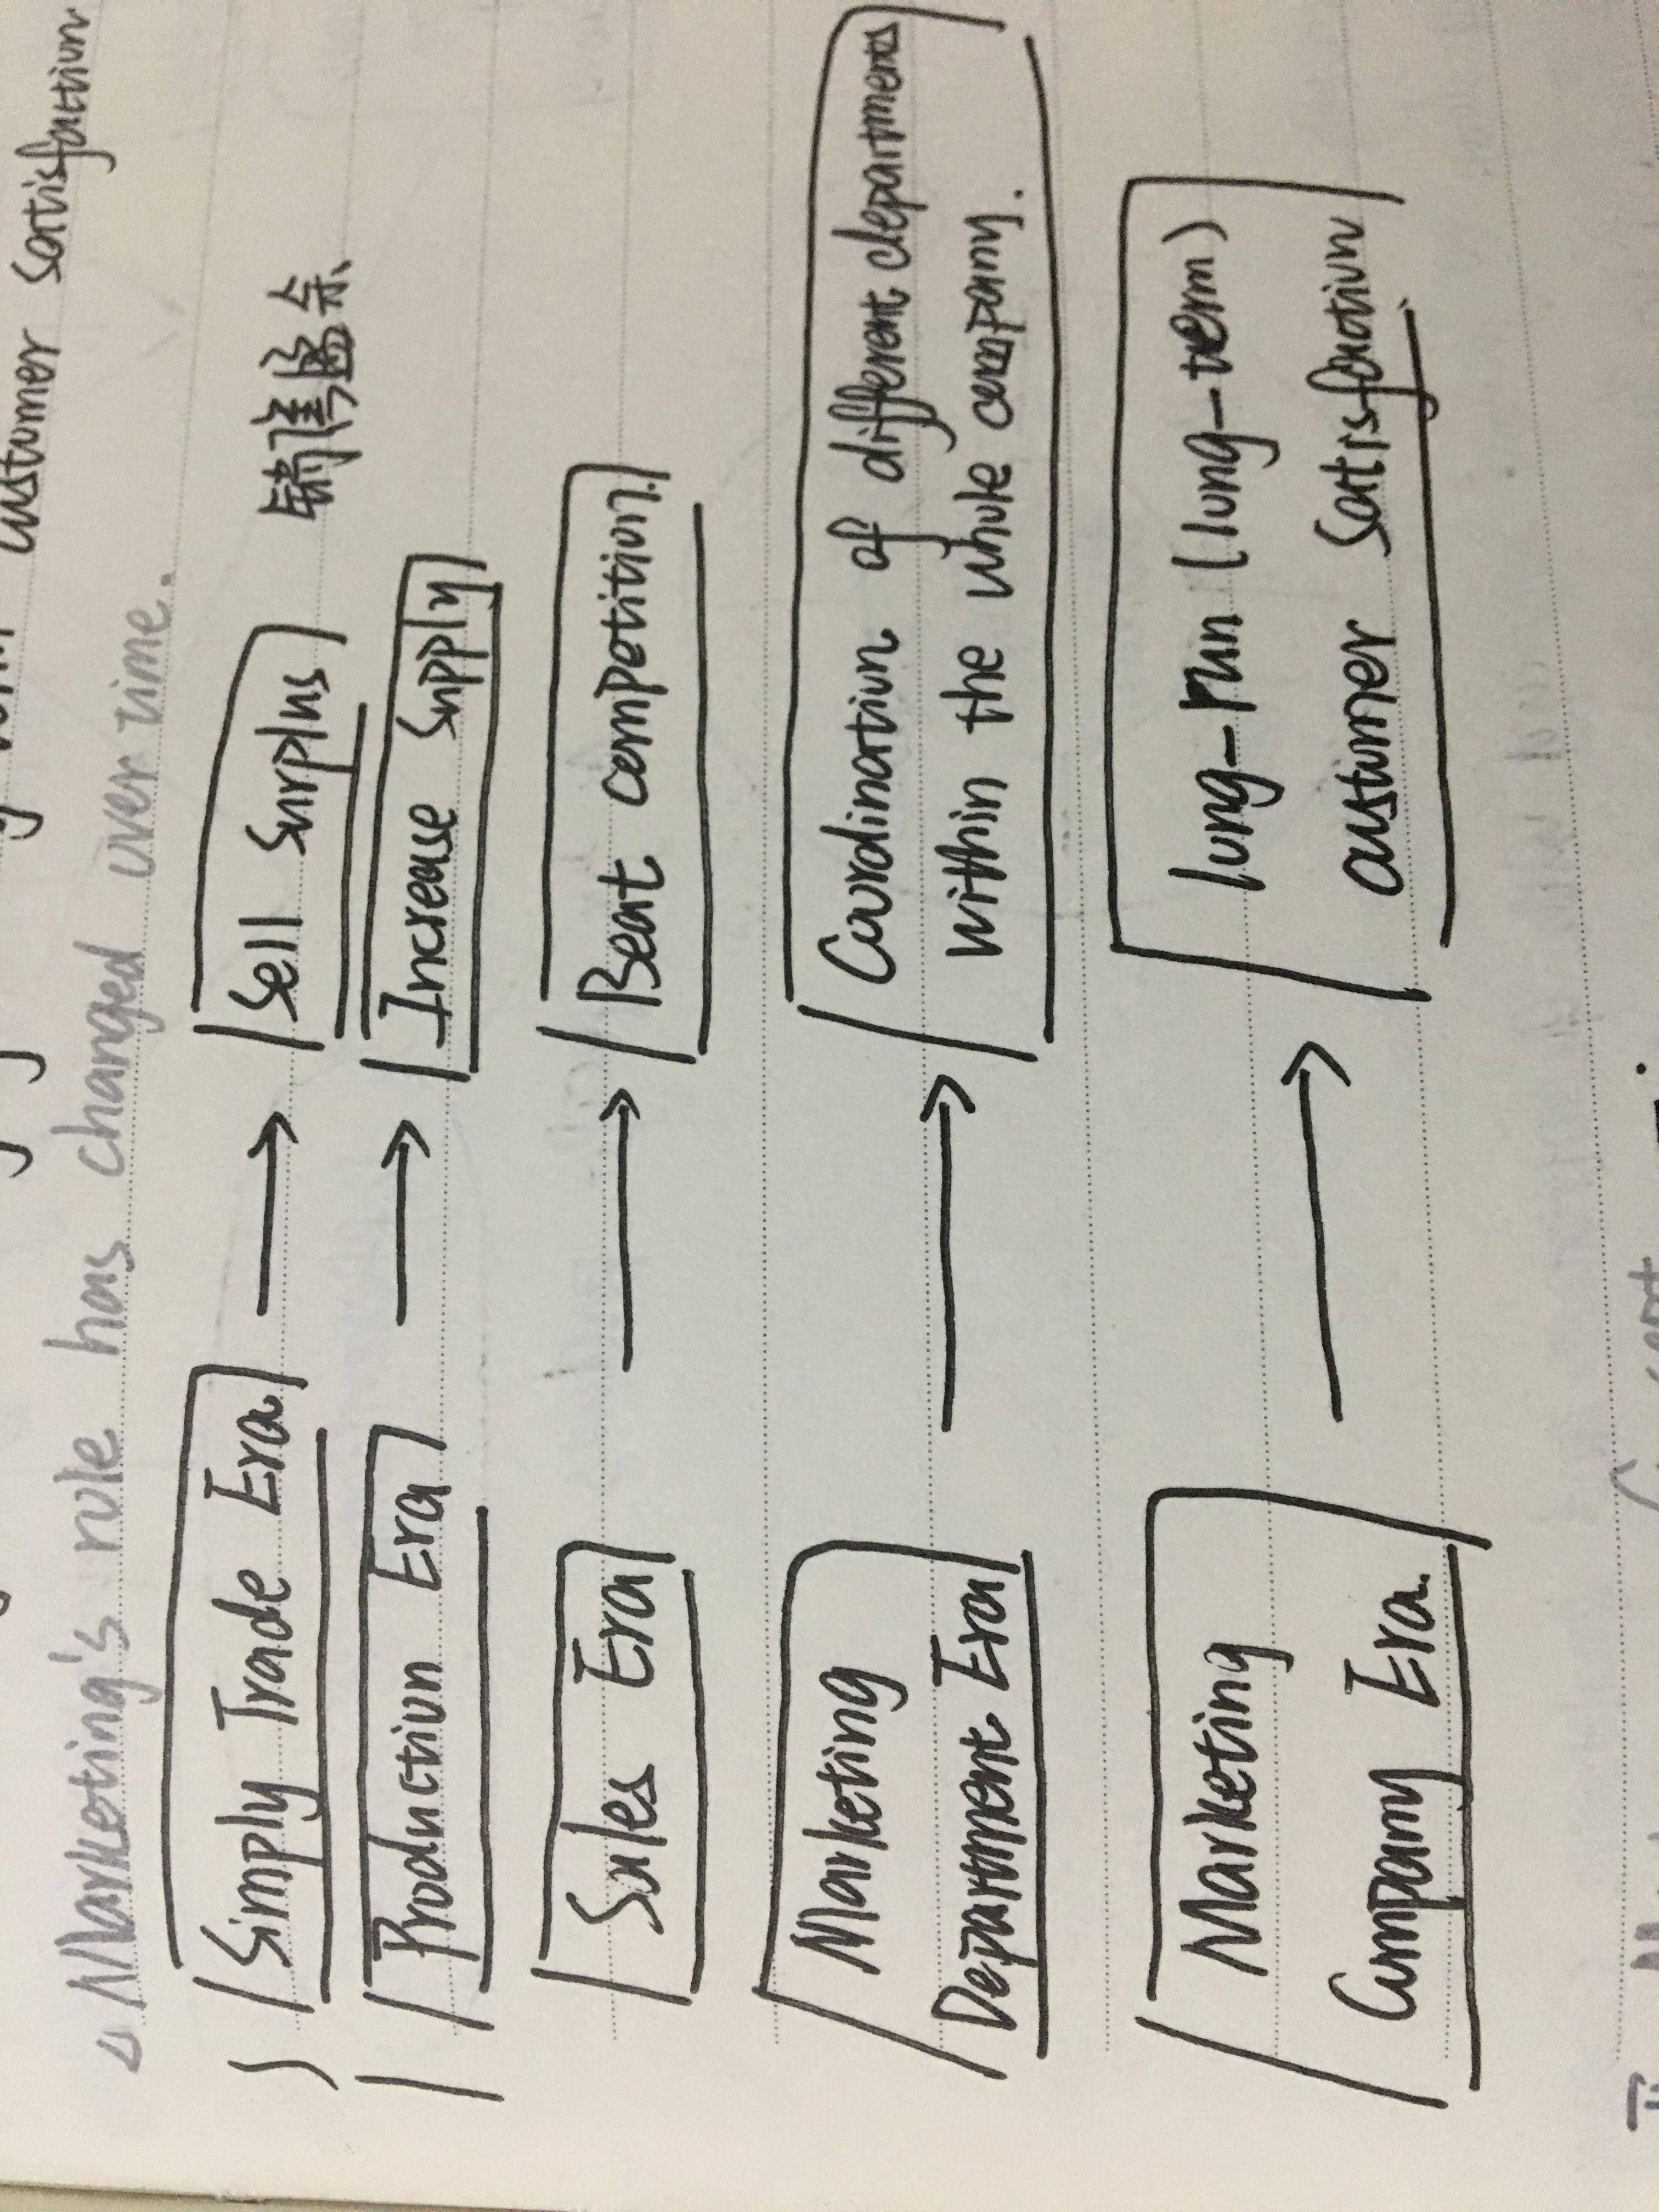 customer satisfaction
△ Marketing's role has changed over time.
Simply Trade Era. → Sell Surplus 销售盈余
Production Era → Increase Supply
Sales Era → Beat competition.
Marketing Department Era → Coordination of different departments
within the whole company.
Marketing Company Era. → long-run (long-term)
customer satisfaction